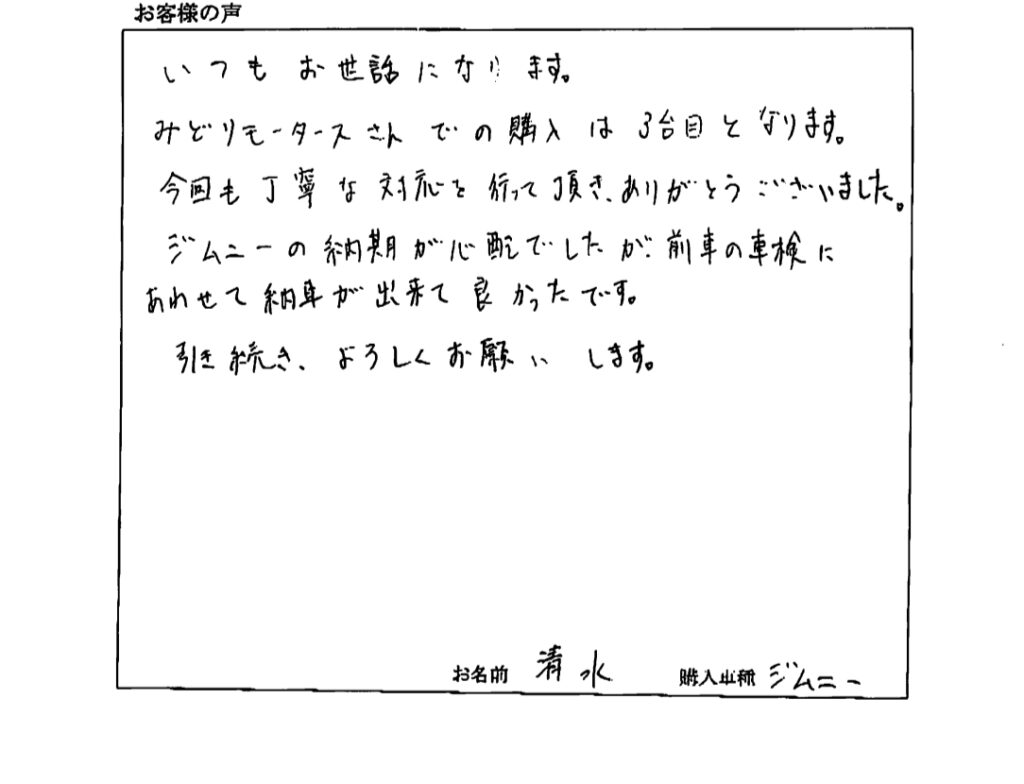 お客様の声
いつもお世話になります。
みどりモータースさんでの購入は3台目となります。
今回も丁寧な対応を行って頂き、ありがとうございました。
ジムニーの納期が心配でしたが、前車の車検に
あわせて納車が出来て良かったです。
引き続き、よろしくお願いします。
お名前 清水 購入車種 ジムニー